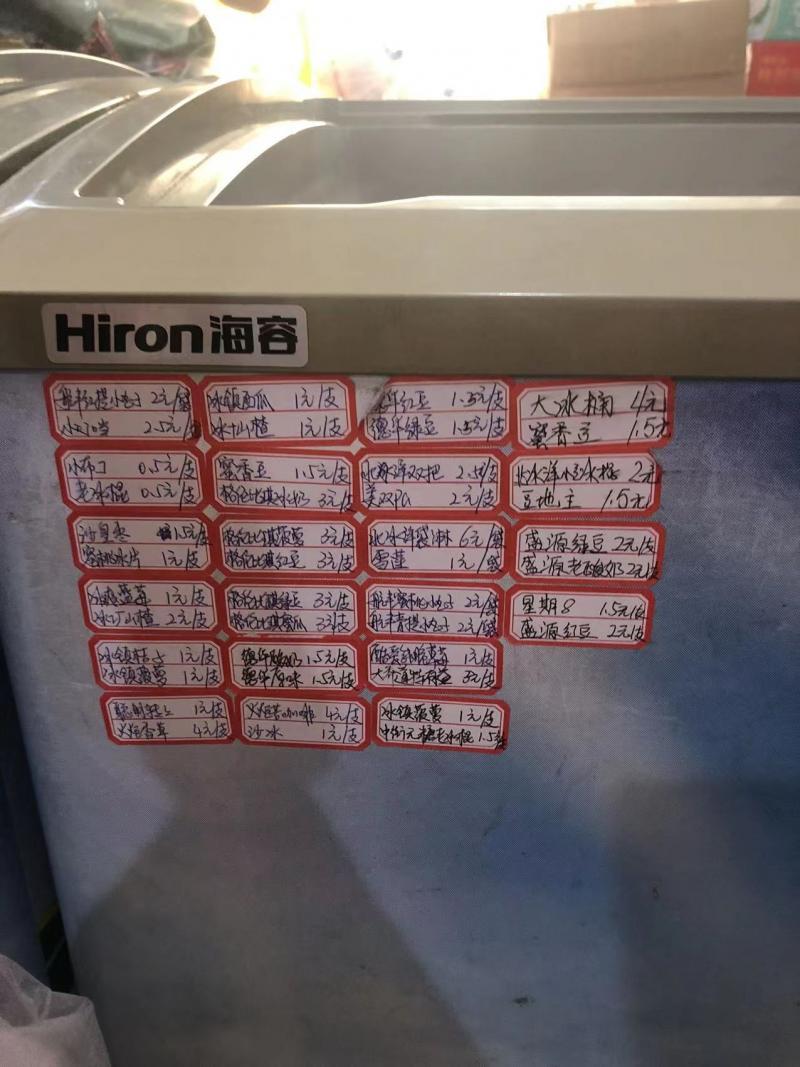 Hiron海容
小叮当 2.5元/袋
小布丁 0.5元/支
老冰棍 0.5元/支
沙皇枣 1.5元/支
蜜桃冰片 1元/支
冰镇蓝莓 1元/支
冰山楂 2元/支
冰镇桔子 1元/支
冰镇菠萝 1元/支
1元/支
火炬香草 4元/支
冰镇西瓜 1元/支
冰山楂 1元/支
蜜香豆 1.5元/支
格伦比琪冰奶 3元/支
格伦比琪菠萝 3元/支
格伦比琪红豆 3元/支
格伦比琪绿豆 3元/支
格伦比琪蜜瓜 3元/支
德华酸奶 1.5元/支
德华原味 1.5元/支
火炬咖啡 4元/支
沙冰 1元/支
德华红豆 1.5元/支
德华绿豆 1.5元/支
北冰洋双把 2.5元/支
美双PA 2元/支
北冰洋袋淋 6元/袋
雪莲 1元/袋
2元/袋
2元/袋
草莓 1元/支
3元/支
冰镇菠萝 1元/支
中街元糖老冰棍 1.5元/支
大冰桶 4元
蜜香豆 1.5元
北冰洋小豆冰棍 2元
豆地主 1.5元
盛源绿豆 2元/支
盛源老酸奶 2元/支
星期8 1.5元/支
盛源红豆 2元/支